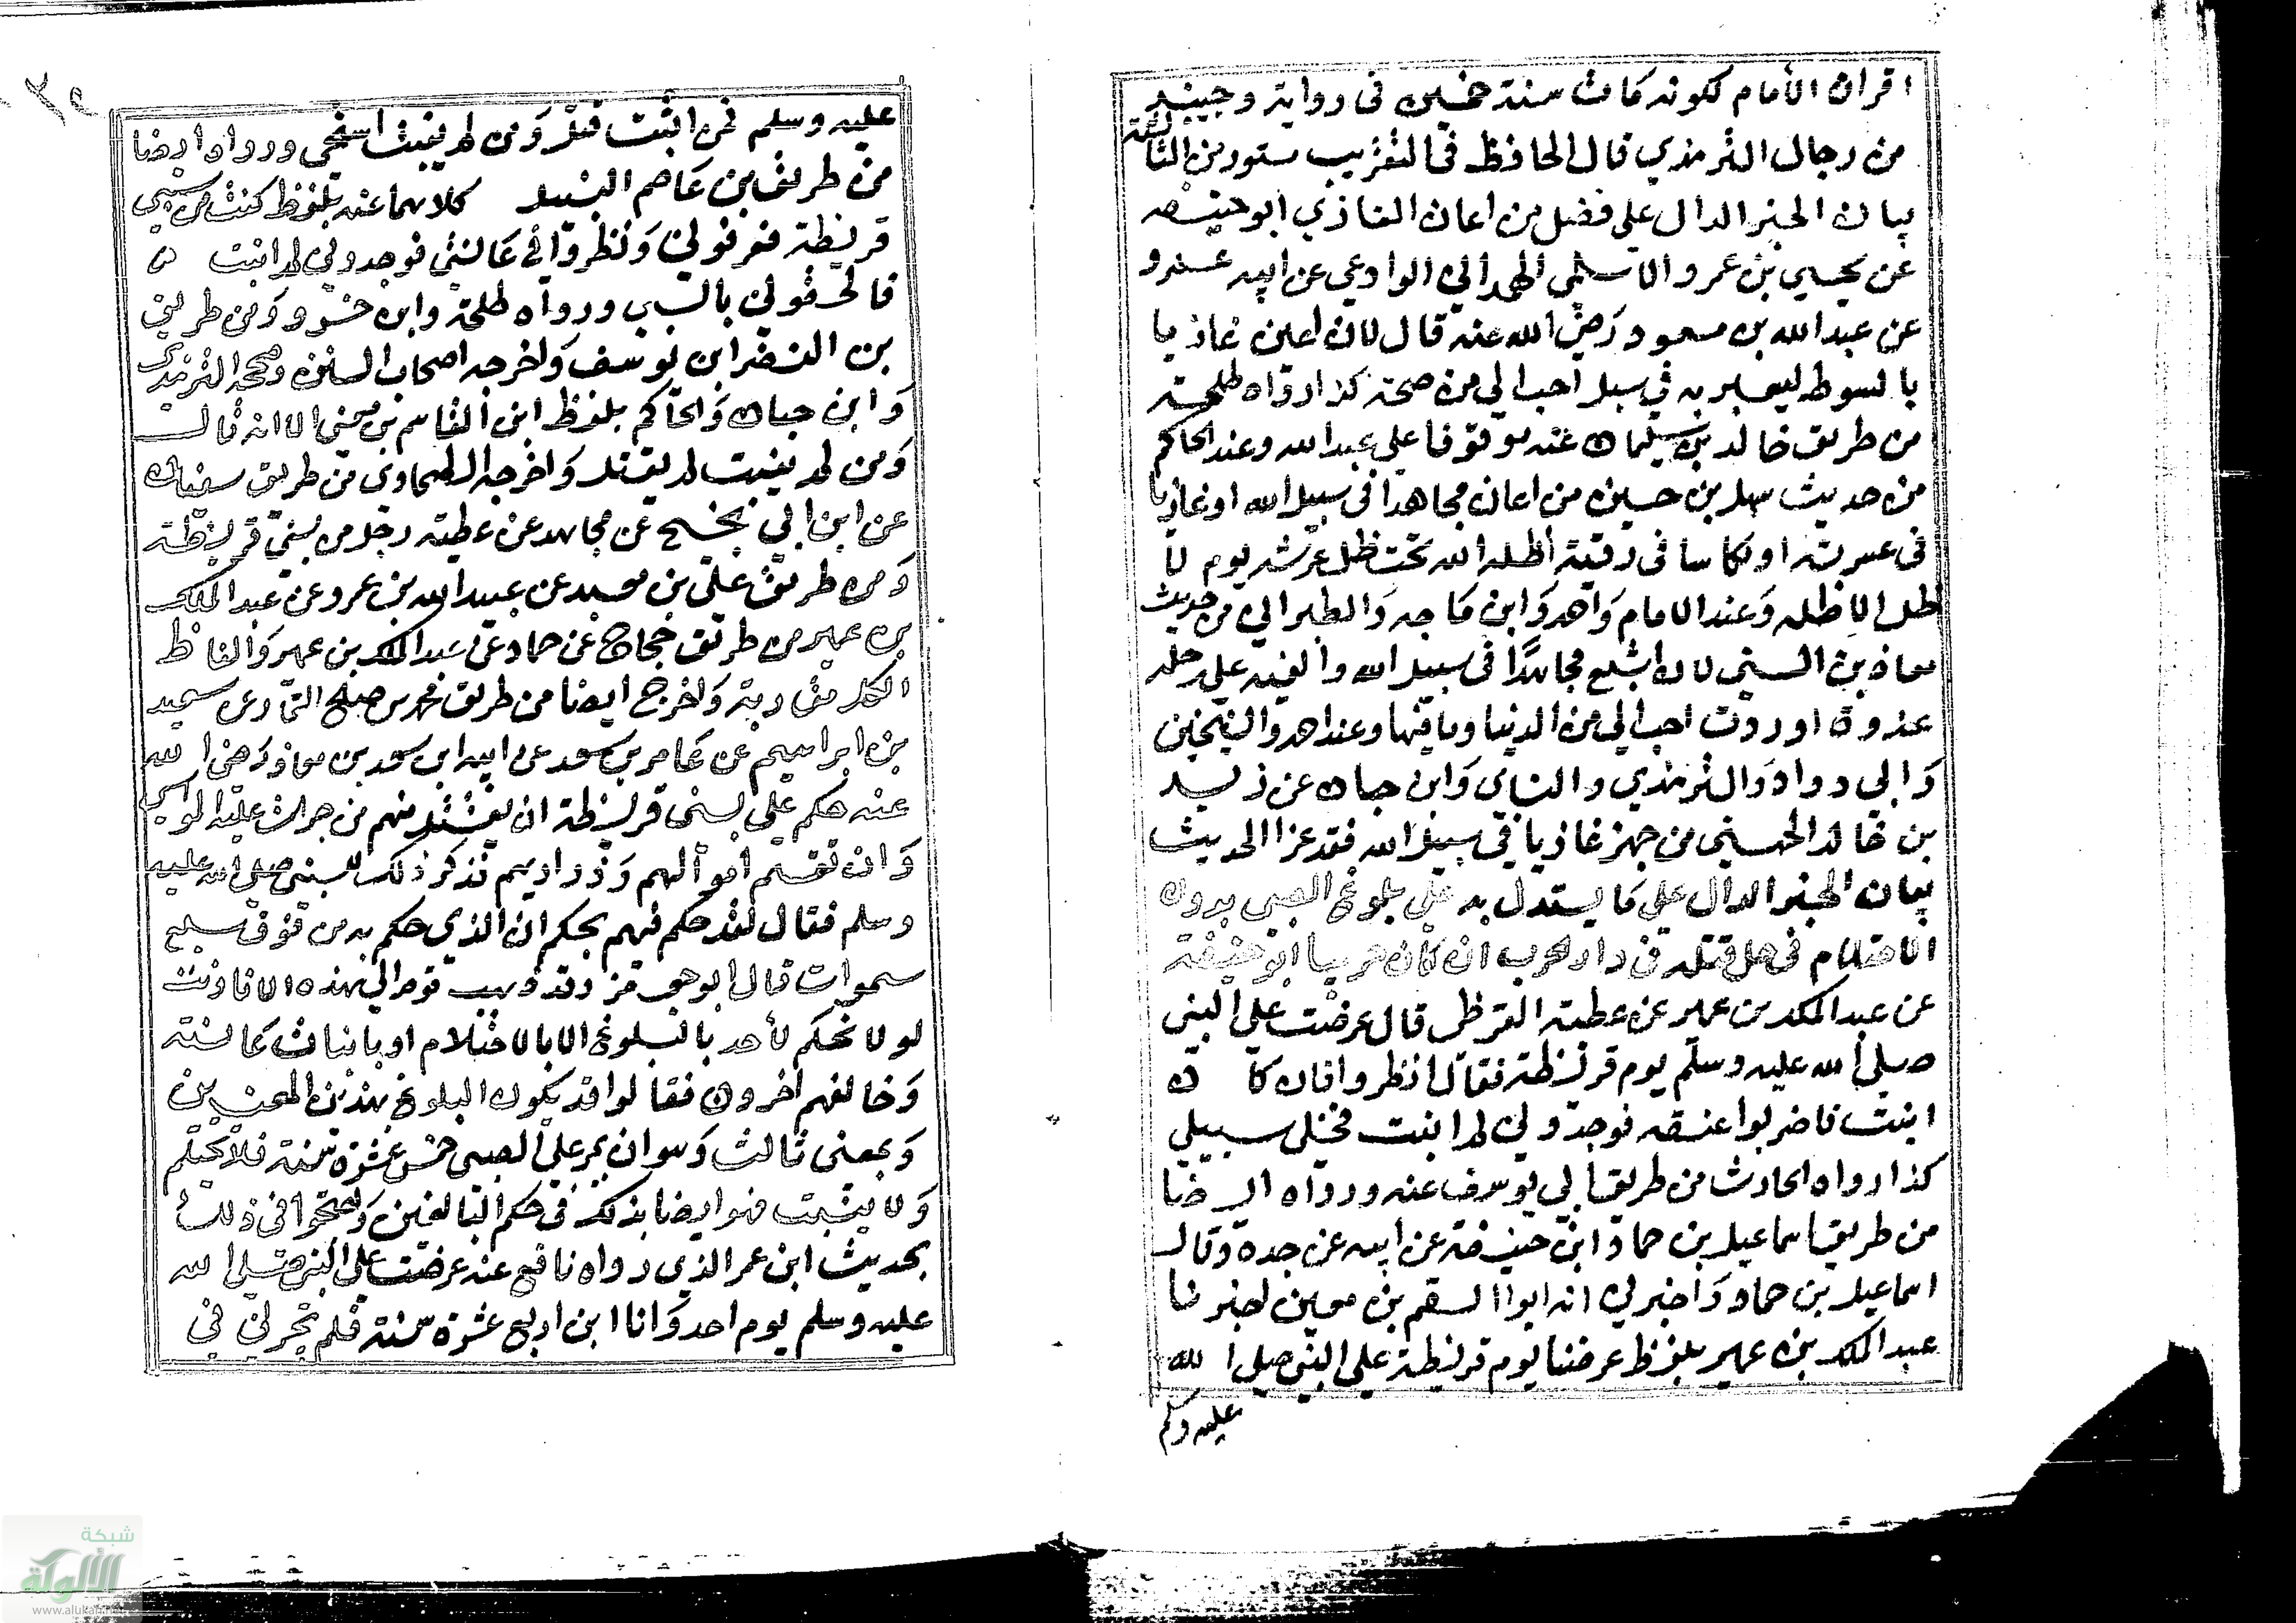 اقران الأمام لكونه كانت سنة خمسين فى رواية وجيبند
من رجال الترمذي قال الحافظ فى التقريب ستور من الثالثة
بيان الخبر الدال على فضل من اعان الغازي ابو حنيفه
عن يحيى بن عمرو الاسلمى الهمدانى الوادعي عن ابيه عمرو
عن عبد الله بن مسعود رضي الله عنه قال لان اعين غازيا
بالسوط ليعير به في سبيل احب الي من صحة كذا رواه طلحة
من طريق خالد بن سليمان عنه موقوفا على عبد الله وعند الحاكم
من حديث سهل بن حسين من اعان مجاهدا فى سبيل الله او غازيا
فى عسرته او مكاسا فى رقبة أظله الله تحت ظل عرشه يوم لا
ظل الا ظله وعند الامام واحمد وابن ماجه والطبراني من حديث
معاذ بن السني لان اشيع مجاهدًا فى سبيل الله والفيه على رحله
غدوة او روت احب الي من الدنيا وما فيها وعند احمد والشيخين
وابي دواد والترمذي والنساى وابن حبان عن زيد
بن خالد الجهني من جهز غازيا في سبيل الله فقد غزا الحديث
بيان الخبر الدال على ما يستدل به على بلوغ الصبى بدون
الاحتلام فى حل قتله فى دار الحرب ان كان حربيا ابو حنيفة
عن عبد الملك بن عمير عن عطية القرظى قال عرضت على النبى
صلى الله عليه وسلم يوم قريظة فقال انظروا فان كان
انبت فاضربوا عنقه فوجدوني لم انبت فخلى سبيلي
كذا رواه الحارث من طريق ابي يوسف عنه ورواه ايضا
من طريق اسماعيل بن حماد ابن حنيفة عن ابيه عن جده وقال
اسماعيل بن حماد واخبرني انه ابوا القسم بن معين اخبرنا
عبد الملك بن عمير بلفظ عرضنا يوم قريظة على النبى صلى الله
عليه وسلم
عليه وسلم فمن انبت قتل ومن لم ينبت استحى ورواه ايضا
من طريق بن عاصم النبيل كلاهما عنه بلفظ كنت من سبي
قريظة فعرفوني ونظروا في عانتي فوجدوني لم انبت
فالحقوني بالسبى ورواه طلحة وابن خسرو ومن طريق
بن النضر ابن يوسف واخرجه اصحاب السنن وصححه الترمذى
وابن حبان والحاكم بلفظ ابن القاسم بن معن الا انه قال
ومن لم ينبت لم يقتل واخرجه الطحاوى من طريق سفيان
عن ابن ابي نجيح عن مجاهد عن عطية رجل من بني قريظة
ومن طريق على بن معبد عن عبيد الله بن عمرو عن عبد الملك
بن عمير من طريق حجاج عن حماد عن عبد الملك بن عمير والفاظ
الكل متقاربة واخرج ايضا من طريق محمد بن صالح التمار عن سعيد
بن ابراهيم عن عامر بن سعد عن ابيه ابن سعد بن معاذ رضى الله
عنه حكم على بنى قريظة ان يقتل منهم من جرت عليه المواسى
وان تقسم اموالهم وذراريهم فذكر ذلك للنبى صلى الله عليه
وسلم فقال لقد حكم فيهم بحكم ان الذي حكم به من فوق سبع
سموات قال ابو جعفر وقد ذهب قوم الى هذه الاثار وقالت
لو لا نحكم لأحد بالبلوغ الا بالاحتلام او بانبات عانته
وخالفهم اخرون فقالوا قد يكون البلوغ بهذين المعنيين
وبمعنى ثالث وهو ان يمر على الصبى خمس عشرة سنة فلا يحتلم
ولا ينبت فهو ايضا بذلك فى حكم البالغين واحتجوا فى ذلك
بحديث ابن عمر الذي رواه نافع عنه عرضت على النبى صلى الله
عليه وسلم يوم احد وانا ابن اربع عشرة سنة فلم يجزني في
شبكة
الألوكة
www.alukah.net